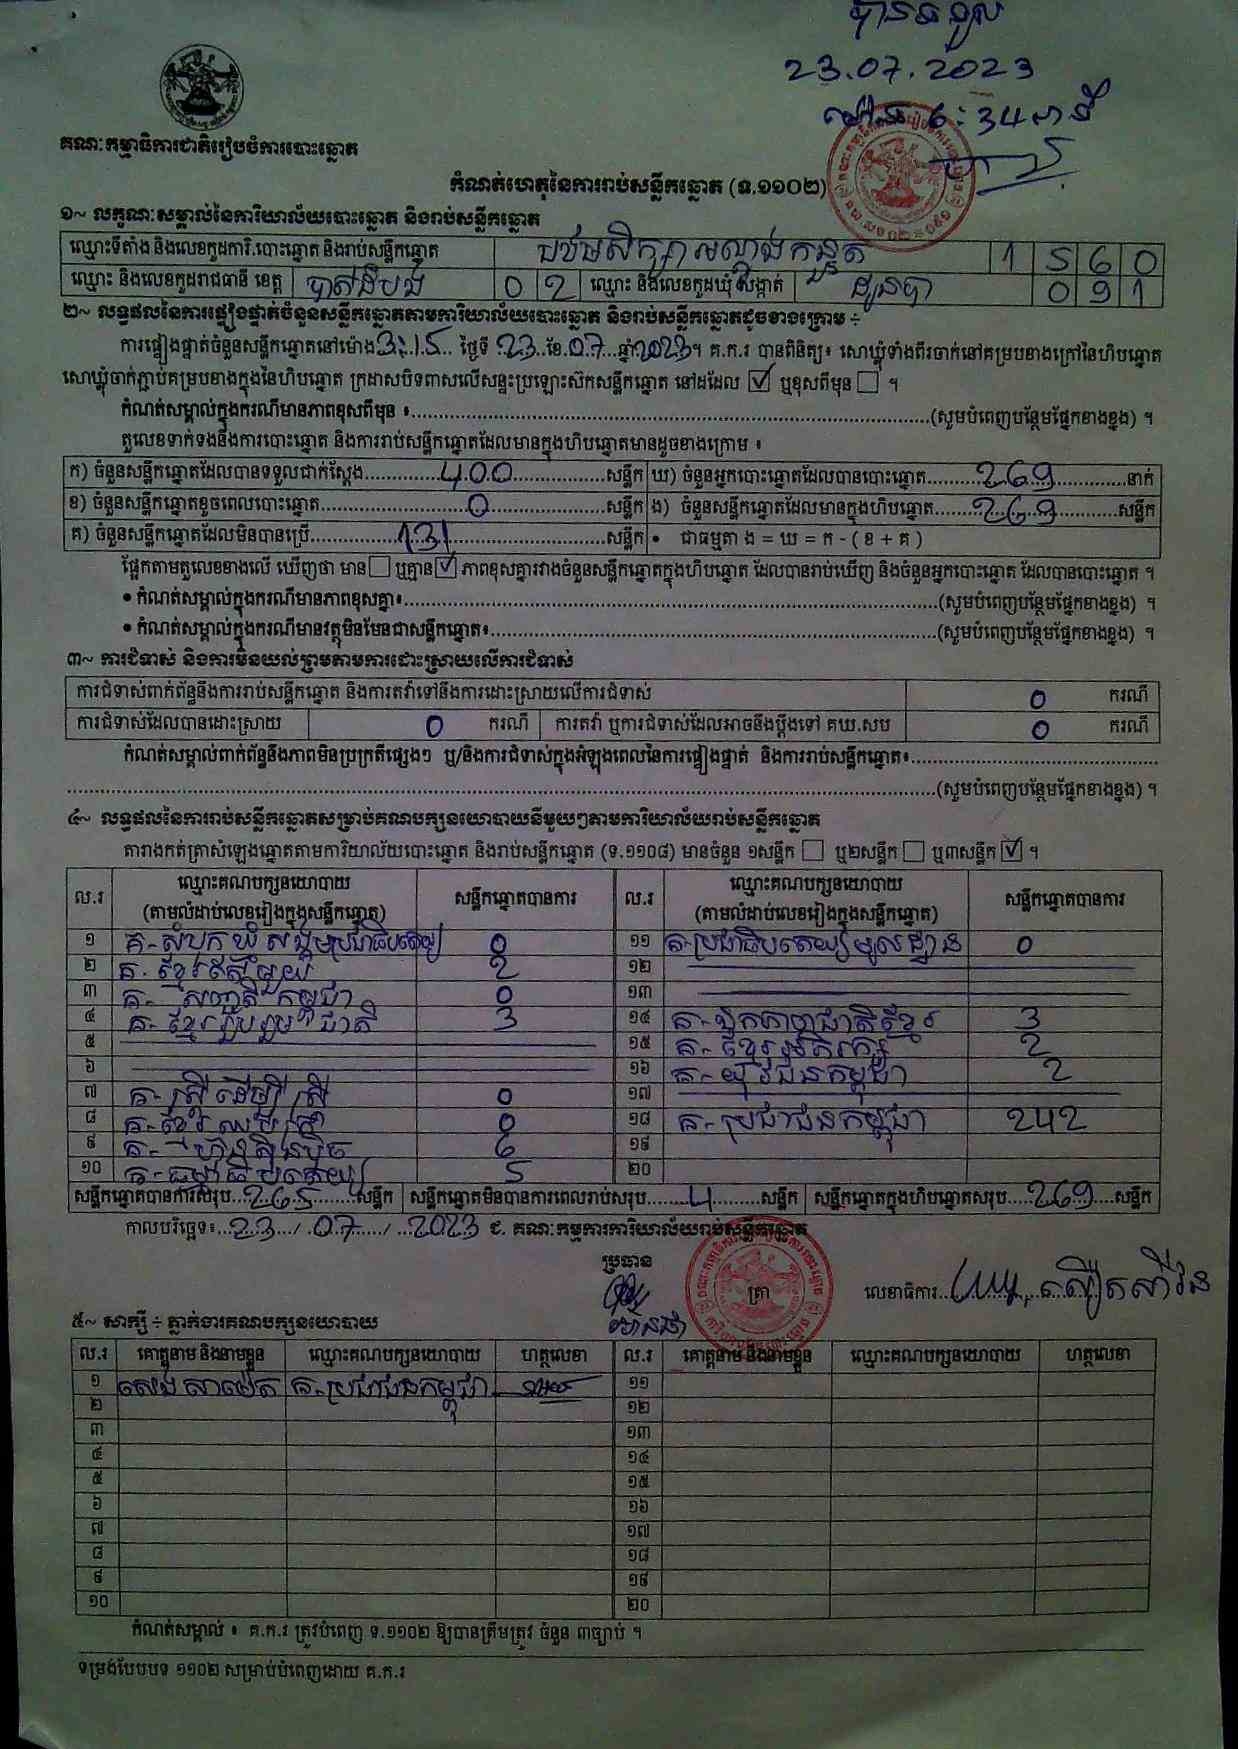 បានទទួល
23.07.2023
ម៉ោង 6:34 នាទី
គណៈកម្មាធិការជាតិរៀបចំការបោះឆ្នោត
កំណត់ហេតុនៃការរាប់សន្លឹកឆ្នោត (ទ.១១០២)
១~ លក្ខណៈសម្គាល់នៃការិយាល័យបោះឆ្នោត និងរាប់សន្លឹកឆ្នោត
ឈ្មោះទីតាំង និងលេខកូដការិ.បោះឆ្នោត និងរាប់សន្លឹកឆ្នោត បឋមសិក្សា 1 5 6 0
ឈ្មោះ និងលេខកូដរាជធានី ខេត្ត បាត់ដំបង 0 2 ឈ្មោះ និងលេខកូដឃុំ សង្កាត់ ដូនបា 0 9 1
២~ លទ្ធផលនៃការផ្ទៀងផ្ទាត់ចំនួនសន្លឹកឆ្នោតតាមការិយាល័យបោះឆ្នោត និងរាប់សន្លឹកឆ្នោតដូចខាងក្រោម ៖
ការផ្ទៀងផ្ទាត់ចំនួនសន្លឹកឆ្នោតនៅម៉ោង 3:15 ថ្ងៃទី 23 ខែ 07 ឆ្នាំ 2023 ។ គ.ក.រ បានពិនិត្យ៖ សោឃ្លុំទាំងពីរចាក់នៅគម្របខាងក្រៅនៃហិបឆ្នោត
សោឃ្លុំចាក់ភ្ជាប់គម្របខាងក្នុងនៃហិបឆ្នោត ក្រដាសបិទពាសលើសន្ទះប្រឡោះស៊កសន្លឹកឆ្នោត នៅដដែល ☑ ឬខុសពីមុន ☐ ។
កំណត់សម្គាល់ក្នុងករណីមានភាពខុសពីមុន ៖..........(សូមបំពេញបន្ថែមផ្នែកខាងខ្នង) ។
តួលេខទាក់ទងនឹងការបោះឆ្នោត និងការរាប់សន្លឹកឆ្នោតដែលមានក្នុងហិបឆ្នោតមានដូចខាងក្រោម ៖
ក) ចំនួនសន្លឹកឆ្នោតដែលបានទទួលជាក់ស្តែង 400 សន្លឹក ឃ) ចំនួនអ្នកបោះឆ្នោតដែលបានបោះឆ្នោត 269 នាក់
ខ) ចំនួនសន្លឹកឆ្នោតខូចពេលបោះឆ្នោត 0 សន្លឹក ង) ចំនួនសន្លឹកឆ្នោតដែលមានក្នុងហិបឆ្នោត 269 សន្លឹក
គ) ចំនួនសន្លឹកឆ្នោតដែលមិនបានប្រើ 131 សន្លឹក • ជាធម្មតា ង = ឃ = ក - ( ខ + គ )
ផ្អែកតាមតួលេខខាងលើ ឃើញថា មាន ☐ ឬគ្មាន ☑ ភាពខុសគ្នារវាងចំនួនសន្លឹកឆ្នោតក្នុងហិបឆ្នោត ដែលបានរាប់ឃើញ និងចំនួនអ្នកបោះឆ្នោត ដែលបានបោះឆ្នោត ។
• កំណត់សម្គាល់ក្នុងករណីមានភាពខុសគ្នា៖..........(សូមបំពេញបន្ថែមផ្នែកខាងខ្នង) ។
• កំណត់សម្គាល់ក្នុងករណីមានវត្ថុមិនមែនជាសន្លឹកឆ្នោត៖..........(សូមបំពេញបន្ថែមផ្នែកខាងខ្នង) ។
៣~ ការជំទាស់ និងការមិនយល់ព្រមតាមការដោះស្រាយលើការជំទាស់
ការជំទាស់ពាក់ព័ន្ធនឹងការរាប់សន្លឹកឆ្នោត និងការតវ៉ាទៅនឹងការដោះស្រាយលើការជំទាស់ 0 ករណី
ការជំទាស់ដែលបានដោះស្រាយ 0 ករណី ការតវ៉ា ឬការជំទាស់ដែលអាចនឹងប្តឹងទៅ គឃ.សប 0 ករណី
កំណត់សម្គាល់ពាក់ព័ន្ធនឹងភាពមិនប្រក្រតីផ្សេងៗ ឬ/និងការជំទាស់ក្នុងអំឡុងពេលនៃការផ្ទៀងផ្ទាត់ និងការរាប់សន្លឹកឆ្នោត៖..........
..........(សូមបំពេញបន្ថែមផ្នែកខាងខ្នង) ។
៤~ លទ្ធផលនៃការរាប់សន្លឹកឆ្នោតសម្រាប់គណបក្សនយោបាយនីមួយៗតាមការិយាល័យរាប់សន្លឹកឆ្នោត
តារាងកត់ត្រាសំឡេងឆ្នោតតាមការិយាល័យបោះឆ្នោត និងរាប់សន្លឹកឆ្នោត (ទ.១១០៨) មានចំនួន ១សន្លឹក ☐ ឬ២សន្លឹក ☐ ឬ៣សន្លឹក ☑ ។
ល.រ ឈ្មោះគណបក្សនយោបាយ (តាមលំដាប់លេខរៀងក្នុងសន្លឹកឆ្នោត) សន្លឹកឆ្នោតបានការ ល.រ ឈ្មោះគណបក្សនយោបាយ (តាមលំដាប់លេខរៀងក្នុងសន្លឹកឆ្នោត) សន្លឹកឆ្នោតបានការ
១ គ-សំបុកឃ្មុំសង្គមប្រជាធិបតេយ្យ 0 ១១ គ-ប្រជាធិបតេយ្យមូលដ្ឋាន 0
២ គ-ខ្មែរតែមួយ 2 ១២
៣ គ- សញ្ជាតិកម្ពុជា 0 ១៣
៤ គ-ខ្មែររួបរួមជាតិ 3 ១៤ គ-ឯកភាពជាតិខ្មែរ 3
៥ ១៥ គ-ខ្មែរអភិរក្ស 2
៦ ១៦ គ-យុវជនកម្ពុជា 2
៧ គ-ស្ត្រីដើម្បីស្ត្រី 0 ១៧
៨ គ-ខ្មែរឈប់ក្រ 0 ១៨ គ-ប្រជាជនកម្ពុជា 242
៩ គ- ហ៊្វុនស៊ិនប៉ិច 6 ១៩
១០ គ-ធម្មាធិបតេយ្យ 5 ២០
សន្លឹកឆ្នោតបានការសរុប 265 សន្លឹក សន្លឹកឆ្នោតមិនបានការពេលរាប់សរុប 4 សន្លឹក សន្លឹកឆ្នោតក្នុងហិបឆ្នោតសរុប 269 សន្លឹក
កាលបរិច្ឆេទ៖ 23 / 07 / 2023 ជ. គណៈកម្មការការិយាល័យរាប់សន្លឹកឆ្នោត
ប្រធាន
ត្រា
លេខាធិការ
៥~ សាក្សី ÷ ភ្នាក់ងារគណបក្សនយោបាយ
ល.រ គោត្តនាម និងនាមខ្លួន ឈ្មោះគណបក្សនយោបាយ ហត្ថលេខា ល.រ គោត្តនាម និងនាមខ្លួន ឈ្មោះគណបក្សនយោបាយ ហត្ថលេខា
១ សេង សាម៉េត គ-ប្រជាជនកម្ពុជា ១១
២ ១២
៣ ១៣
៤ ១៤
៥ ១៥
៦ ១៦
៧ ១៧
៨ ១៨
៩ ១៩
១០ ២០
កំណត់សម្គាល់ ៖ គ.ក.រ ត្រូវបំពេញ ទ.១១០២ ឱ្យបានត្រឹមត្រូវ ចំនួន ៣ច្បាប់ ។
ទម្រង់បែបបទ ១១០២ សម្រាប់បំពេញដោយ គ.ក.រ